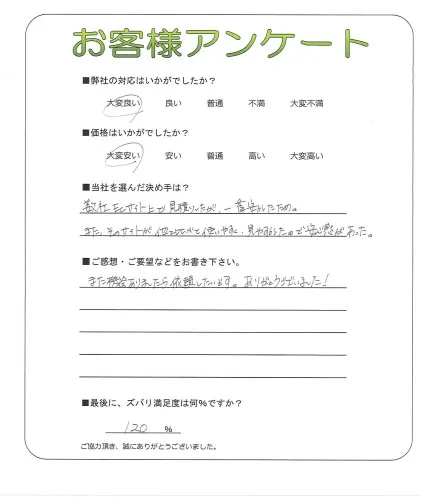 お客様アンケート
■弊社の対応はいかがでしたか？
大変良い 良い 普通 不満 大変不満
■価格はいかがでしたか？
大変安い 安い 普通 高い 大変高い
■当社を選んだ決め手は？
数社 サイト上で見積りしたが、一番安かったため。
また、そのサイトが他とくらべて使いやすく、見やすかったので安心感があった。
■ご感想・ご要望などをお書き下さい。
また機会ありましたら依頼したいです。ありがとうございました！
■最後に、ズバリ満足度は何％ですか？
120 ％
ご協力頂き、誠にありがとうございました。